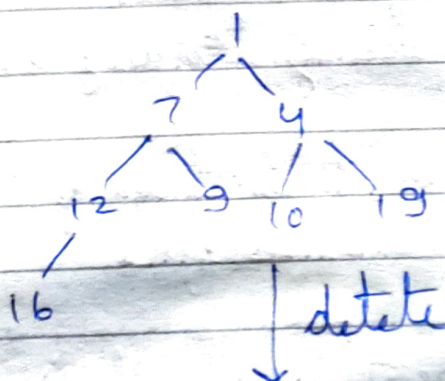 1
7 4
12 9 10 19
16
detete